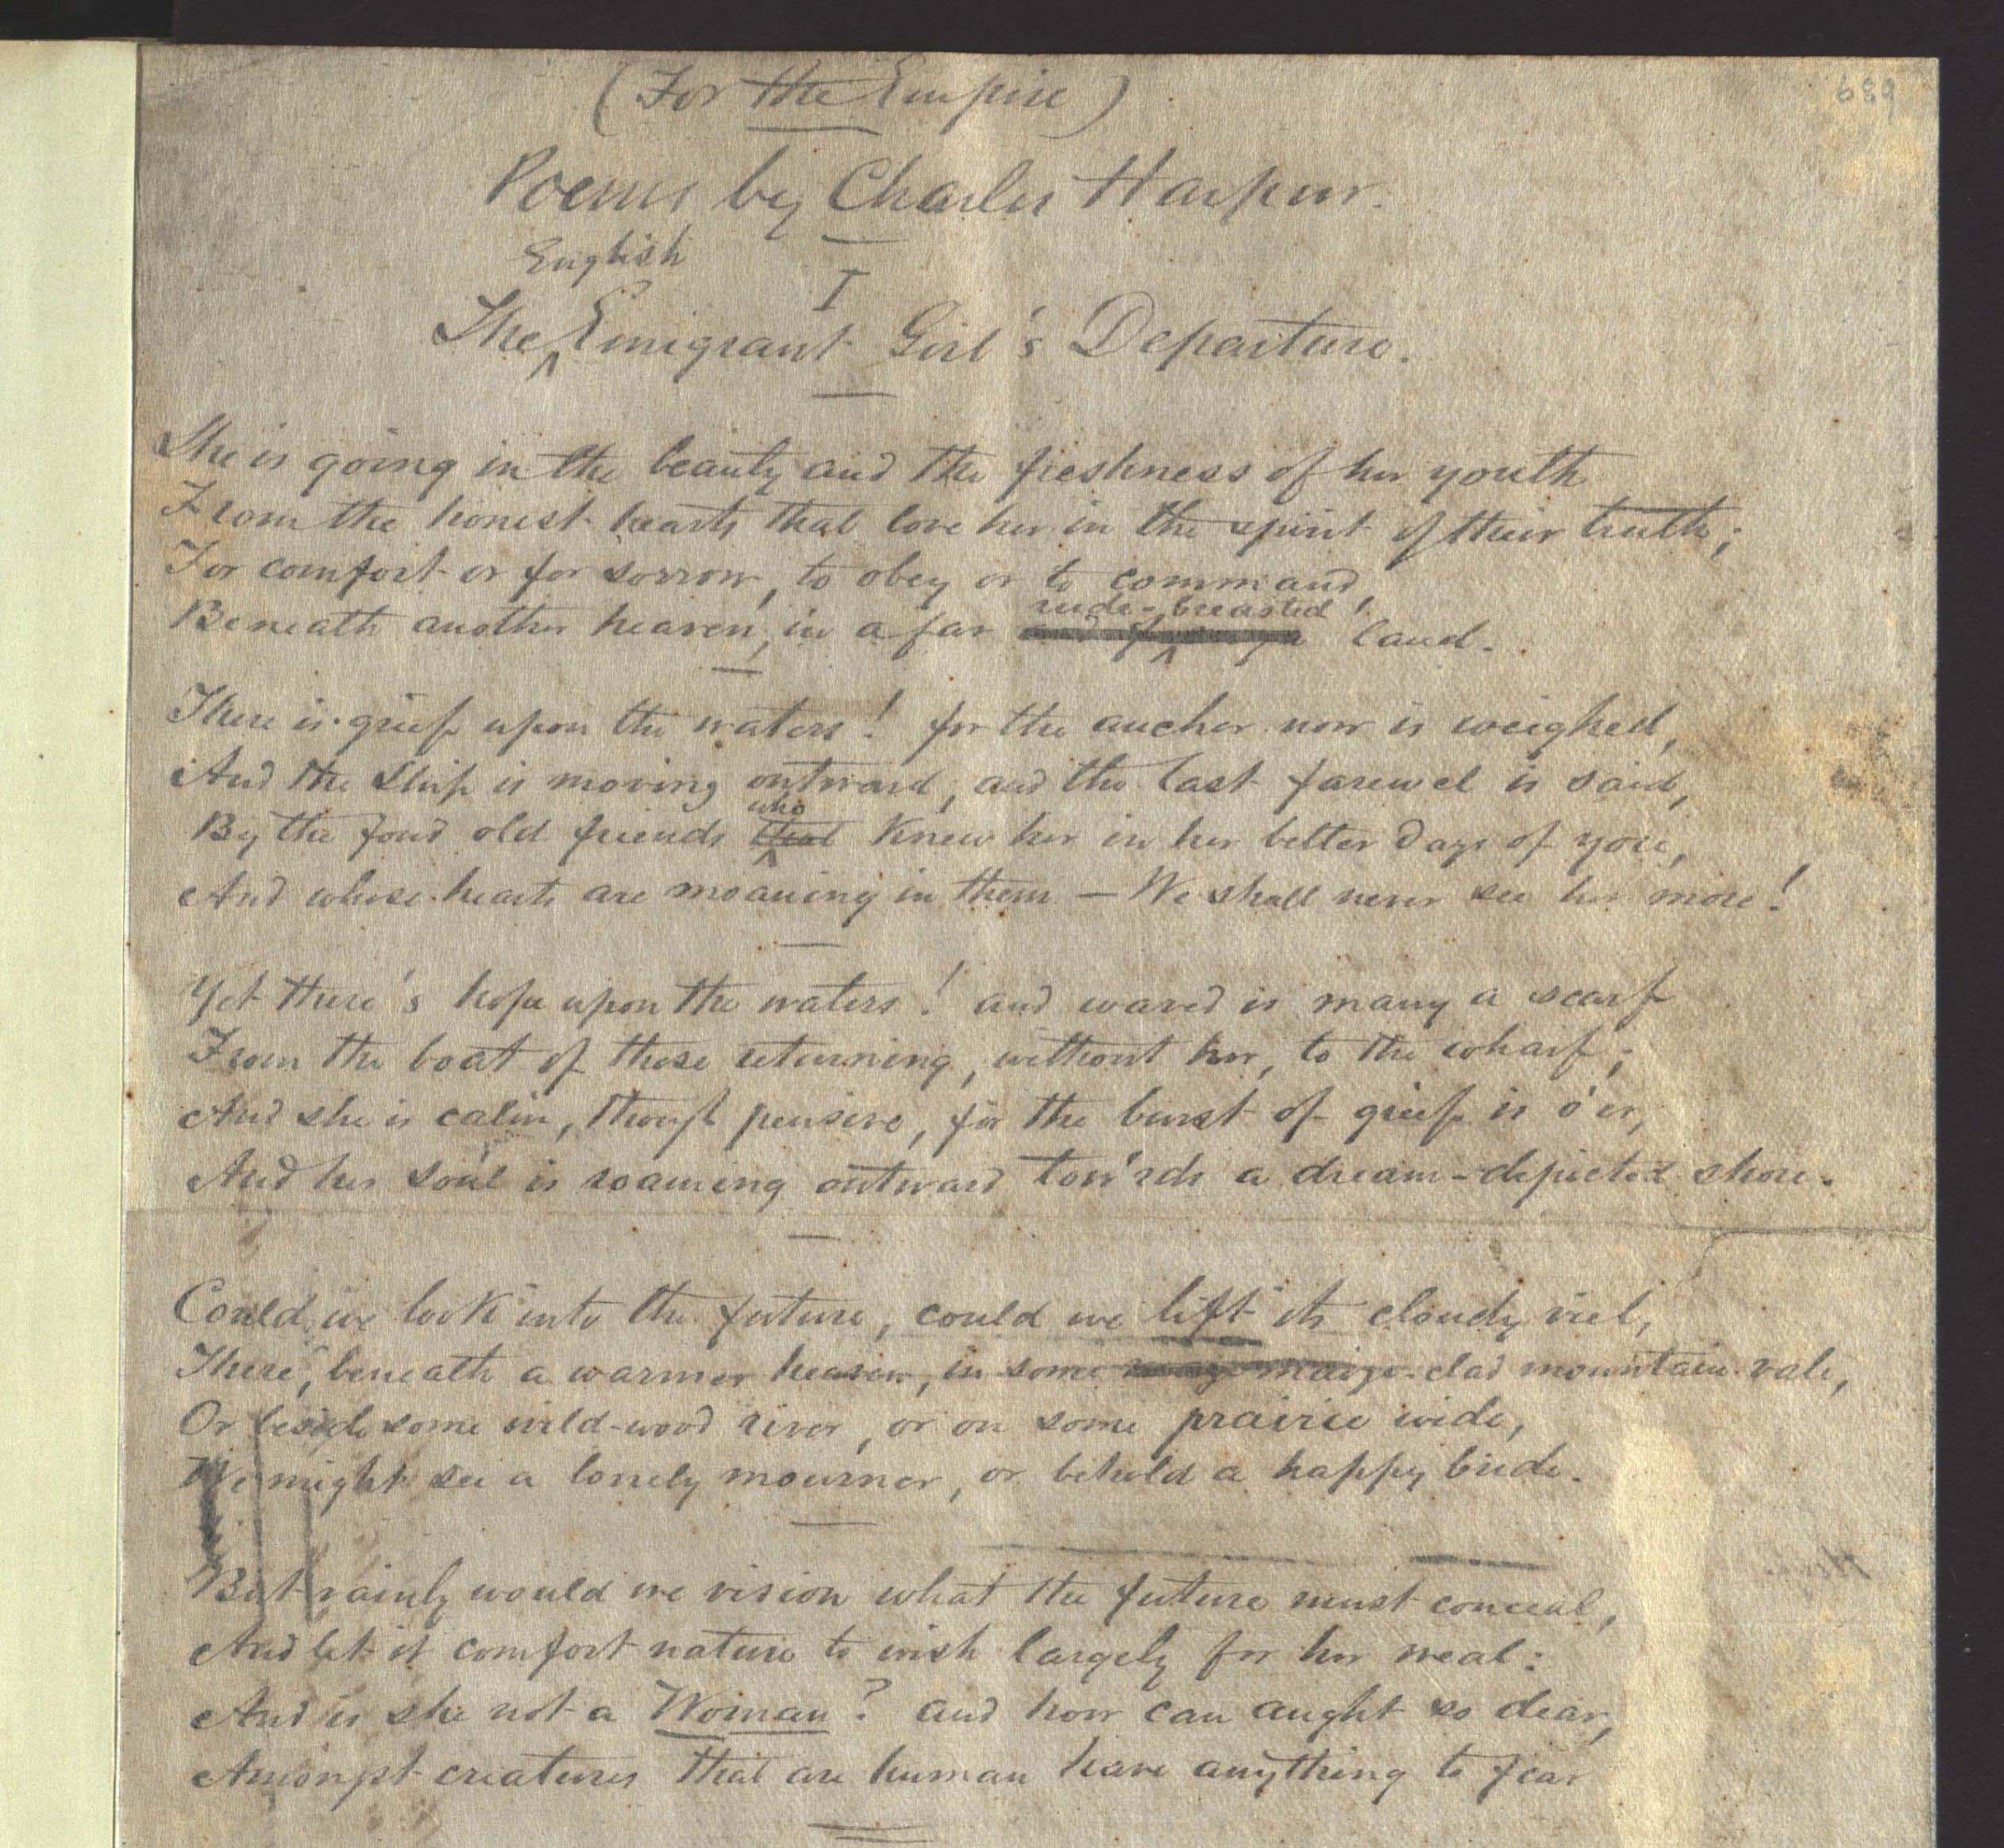 689
(For the Empire)
Poems by Charles Harpur.
I
The English Emigrant Girl's Departure.
She is going in the beauty and the freshness of her youth
From the honest hearts that love her in the spirit of their truth;
For comfort or for sorrow, to obey or to command,
Beneath another heaven, in a far rude-breasted land.
There is grief upon the waters! for the anchor now is weighed,
And the Ship is moving outward, and the last farewel is said,
By the fond old friends that who knew her in her better days of yore,
And whose hearts are moaning in them — We shall never see her more!
Yet there's hope upon the waters! and waved is many a scarf
From the boat of those returning, without her, to the wharf;
And she is calm, though pensive, for the burst of grief is o'er,
And her soul is roaming outward tow'rds a dream-depicted shore.
Could we look into the future, could we lift its cloudy viel,
There, beneath a warmer heaven, in some maize-clad mountain vale,
Or beside some wild-wood river, or on some prairie wide,
We might see a lonely mourner, or behold a happy bride.
But vainly would we vision what the future must conceal,
And let it comfort nature to wish largely for her weal:
And is she not a Woman? and how can aught so dear,
Amongst creatures that are human have anything to fear